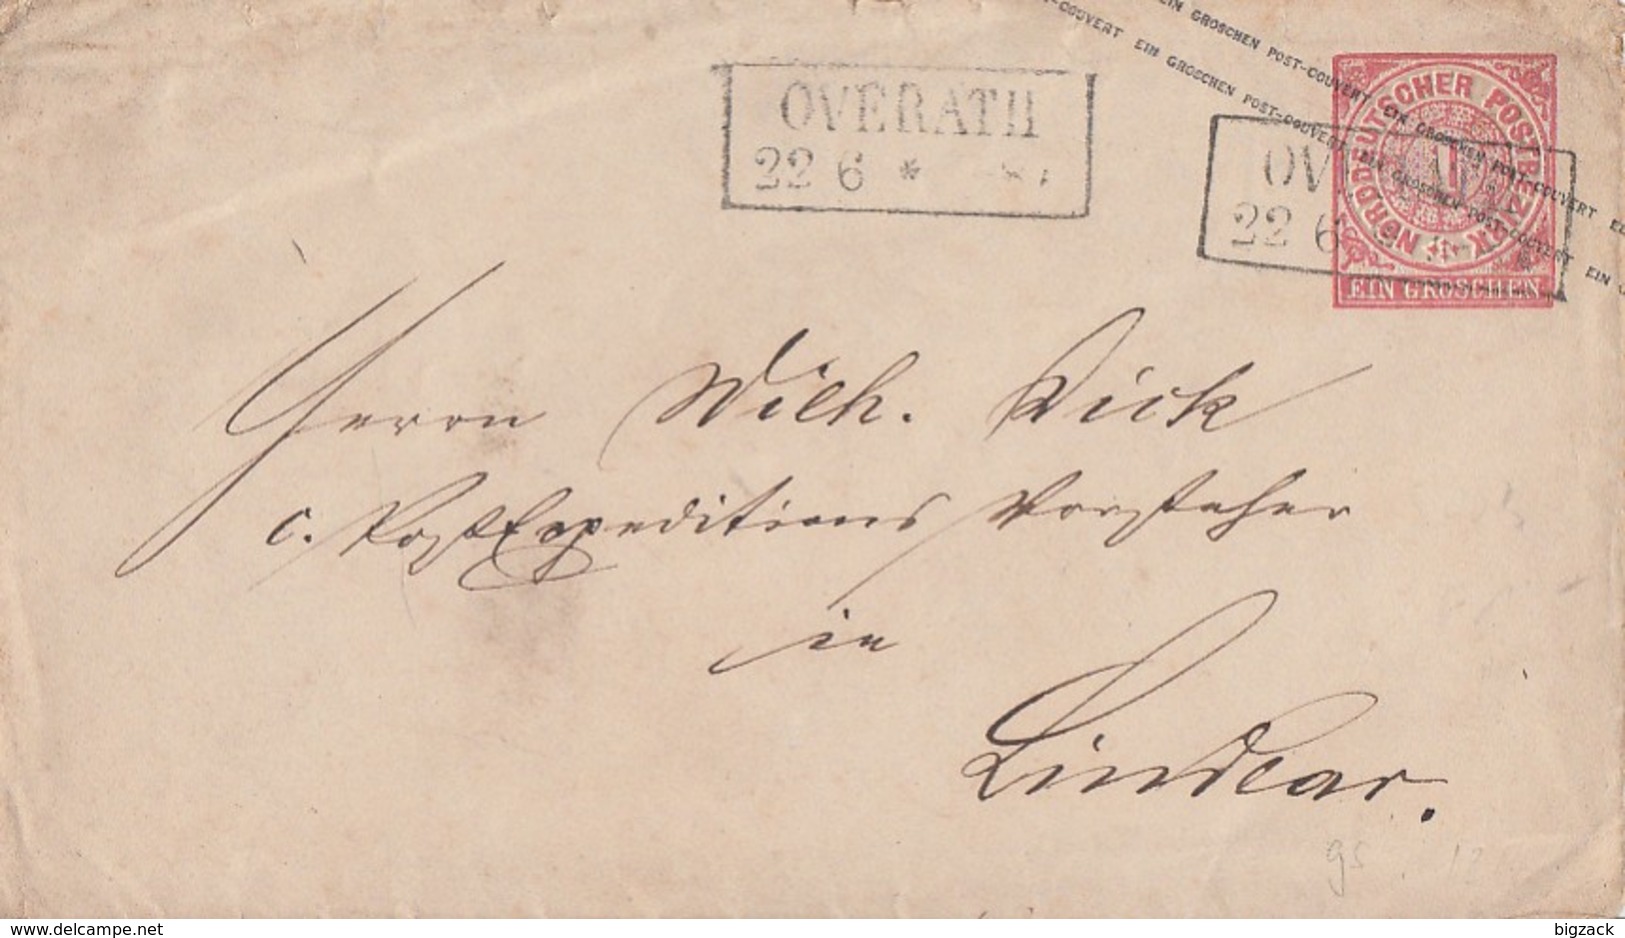 EIN GROSCHEN POST-COUVERT EIN GROSCHEN POST-COUVERT
POST-COUVERT EIN GROSCHEN POST-COUVERT EIN GROSCHEN POST-COUVERT EIN
NORDDEUTSCHER POSTBEZIRK
1
EIN GROSCHEN
OVERATH
22 6 *
OV
22 6
Herrn Wilh. Dick
c. Post Expeditions Vorsteher
in
Lindlar.
gs 12
www.delcampe.net
bigzack